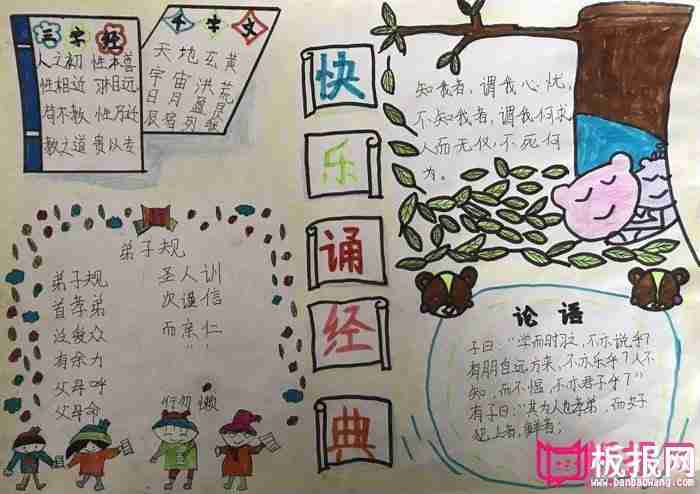 三字经
人之初 性本善
性相近 习相远
苟不教 性乃迁
教之道 贵以专
千字文
天地玄黄
宇宙洪荒
日月盈昃
辰宿列张
快
乐
诵
经
典
知我者，谓我心忧，
不知我者，谓我何求
人而无仪，不死何
为。
弟子规
弟子规 圣人训
首孝弟 次谨信
泛爱众 而亲仁
有余力
父母呼
父母命 行勿懒
论语
子曰："学而时习之，不亦说乎？
有朋自远方来，不亦乐乎？人不
知，而不愠，不亦君子乎？"
有子曰："其为人也孝弟，而好
犯上者，鲜者；
板报网
www.banbaowang.com